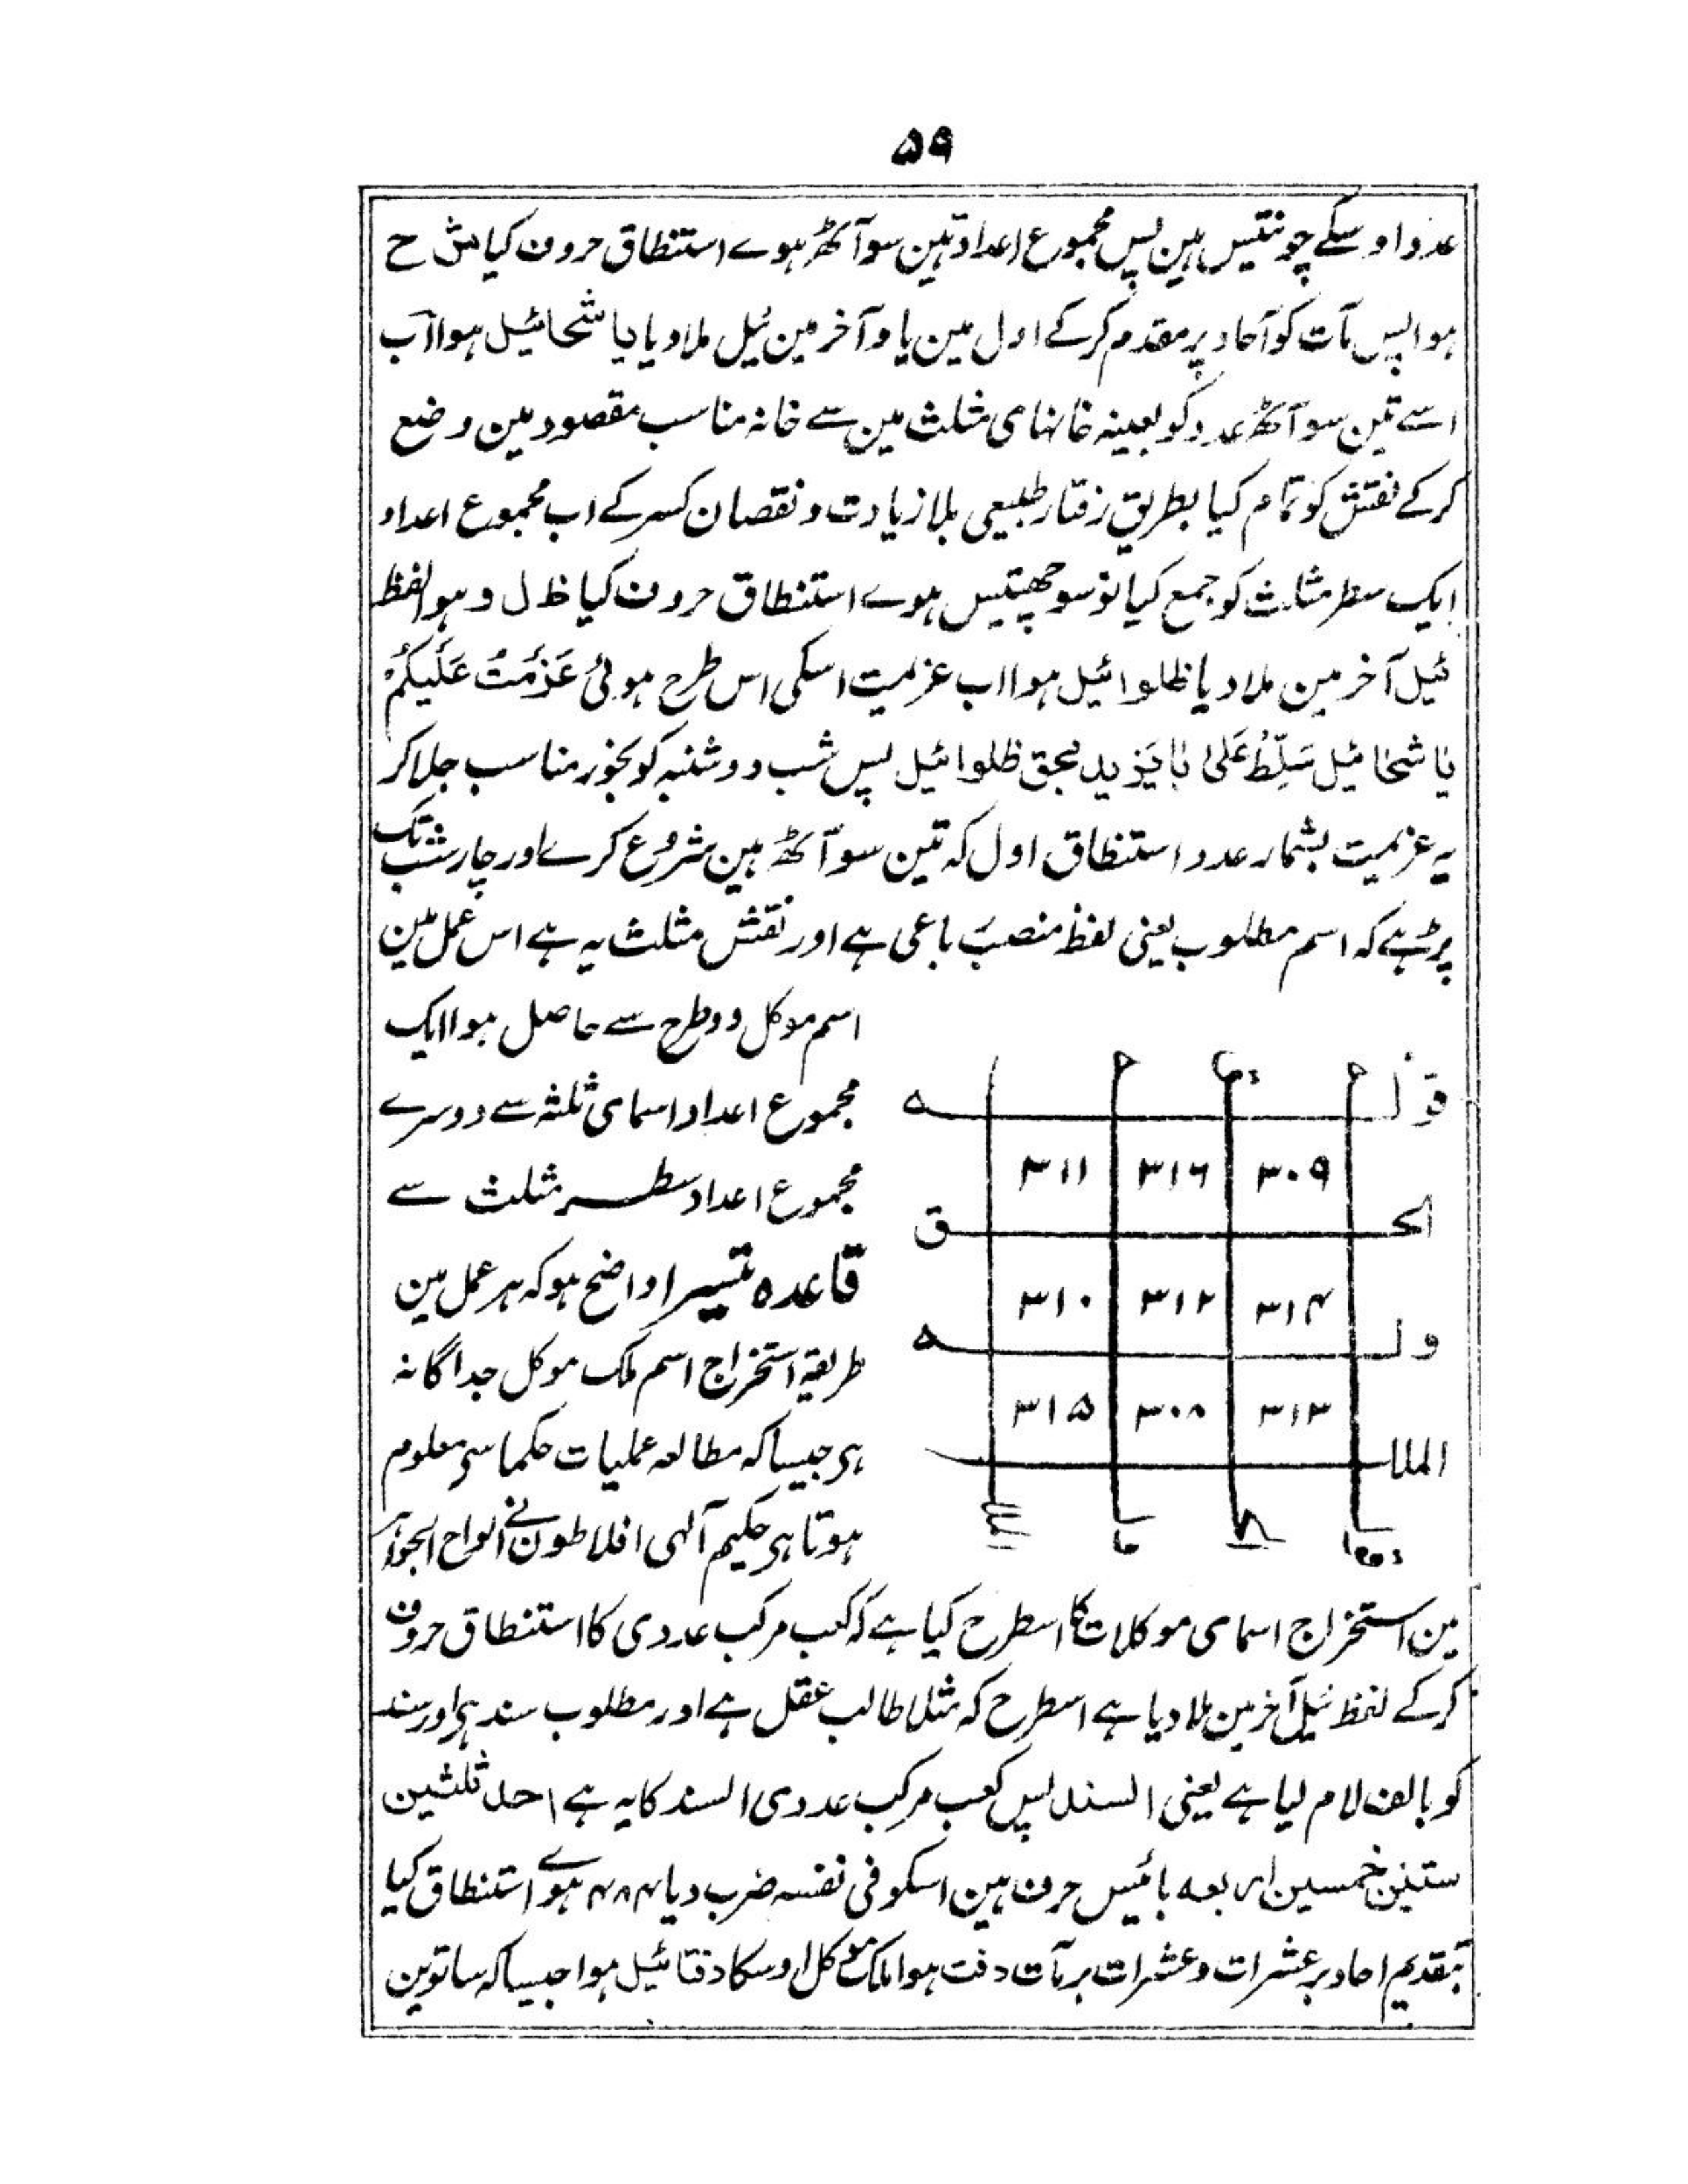 ۵۹
عدد اوسکے چونتیس ہین پس مجموع اعداد تین سو آٹھ ہوے استنطاق حروف کیا ش ح
ہوا پس مآت کو آحاد پر مقدم کرکے اول مین یا و آخر مین ئیل ملا دیا یا شحائیل ہوا اب
اسے تین سو آٹھ عدد کو بعینہ خانہای مثلث مین سے خانہ مناسب مقصود مین وضع
کرکے نقش کو تمام کیا بطریق رفتار طبیعی بلا زیادت و نقصان کسر کے اب مجموع اعداد
ایک سطر مثلث کو جمع کیا نو سو چھتیس ہوے استنطاق حروف کیا ظ ل و ہوا لفظ
ئیل آخر مین ملا دیا ظلوائیل ہوا اب عزیمت اسکی اس طرح ہوئی عَزَمْتُ عَلَیکُمْ
یا شحائیل سَلِّطْ عَلیٰ بایَزید بحق ظلوائیل پس شب دوشنبہ کو بخور مناسب جلا کر
یہ عزیمت بشمار عدد استنطاق اول کہ تین سو آٹھ ہین شروع کرے اور چار شب تک
پڑہے کہ اسم مطلوب یعنی لفظ منصب رباعی ہے اور نقش مثلث یہ ہے اس عمل مین
اسم موکل دو طرح سے حاصل ہوا ایک
مجموع اعداد اسمای ثلثہ سے دوسرے
مجموع اعداد سطر مثلث سے
قاعدہ تیسرا واضح ہو کہ ہر عمل مین
طریقہ استخراج اسم ملک موکل جداگانہ
ہی جیسا کہ مطالعہ عملیات حکما سی معلوم
ہوتا ہی حکیم آلہی افلاطون نے الواح الجواہر
قولہ
۳۰۹ ۳۱۶ ۳۱۱
الحق
۳۱۴ ۳۱۲ ۳۱۰
ولہ
۳۱۳ ۳۰۸ ۳۱۵
الملک
مین استخراج اسمای موکلات کا اسطرح کیا ہے کہ کعب مرکب عددی کا استنطاق حروف
کرکے لفظ ئیل آخر مین ملا دیا ہے اسطرح کہ مثلا طالب عقل ہے اور مطلوب سند ہی اور سند
کو بالف لام لیا ہے یعنی السند پس کعب مرکب عددی السند کا یہ ہے احد ثلثین
ستین خمسین اربعہ بائیس حرف ہین اسکو فی نفسہ ضرب دیا ۴۸۴ ہوے استنطاق کیا
بتقدیم احاد بر عشرات و عشرات بر مآت دفت ہوا ملک موکل اوسکا دفتائیل ہوا جیسا کہ ساتوین